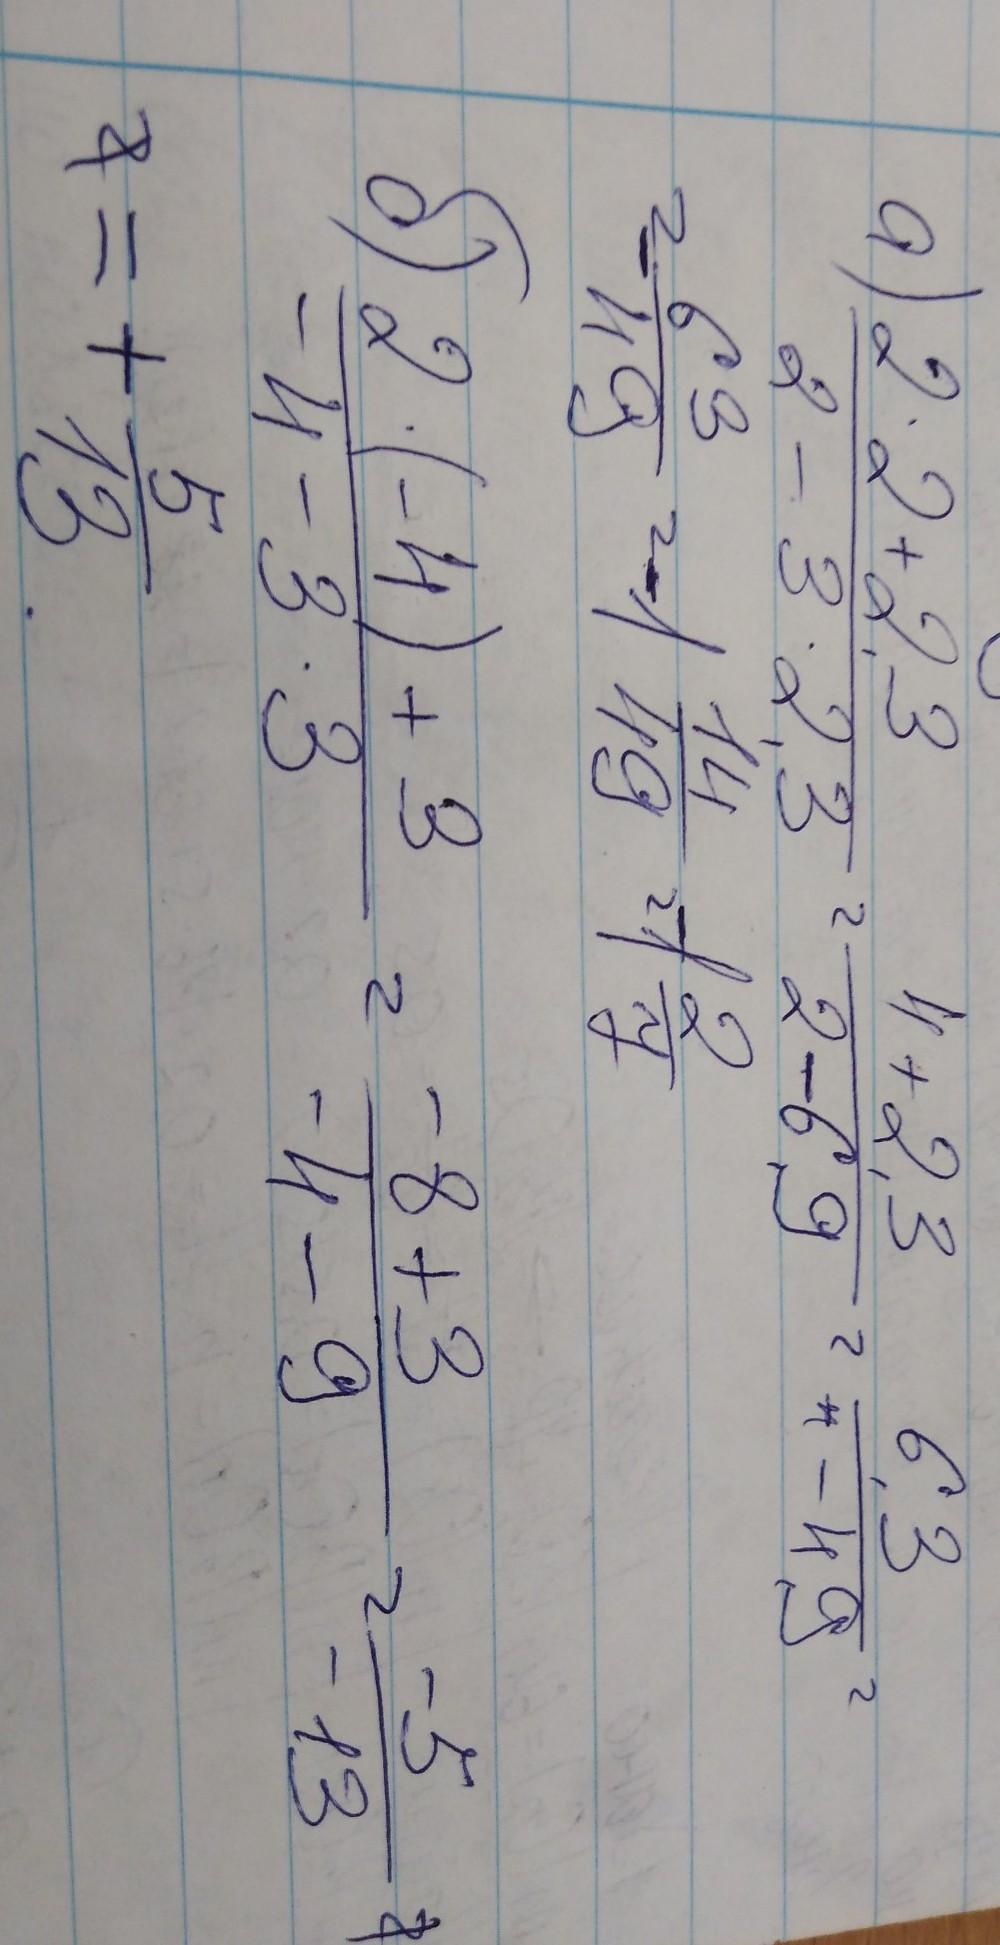 а) (2·2+2,3)/(2-3·2,3) = (4+2,3)/(2-6,9) = 6,3/(-4,9) =
= -63/49 = -1 14/49 = -1 2/7
б) (2·(-4)+3)/(-4-3·3) = (-8+3)/(-4-9) = -5/-13
= + 5/13.